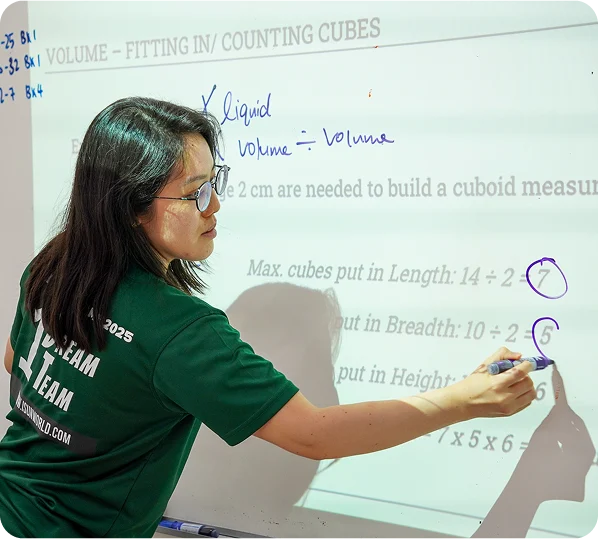 -25 Bk 1
-32 Bk 1
2-7 Bk 4
VOLUME – FITTING IN/ COUNTING CUBES
X liquid
volume ÷ volume
2 cm are needed to build a cuboid measur
Max. cubes put in Length: 14 ÷ 2 = 7
put in Breadth: 10 ÷ 2 = 5
put in Height: 6
= 7 x 5 x 6 =
2025
1 DREAM
TEAM